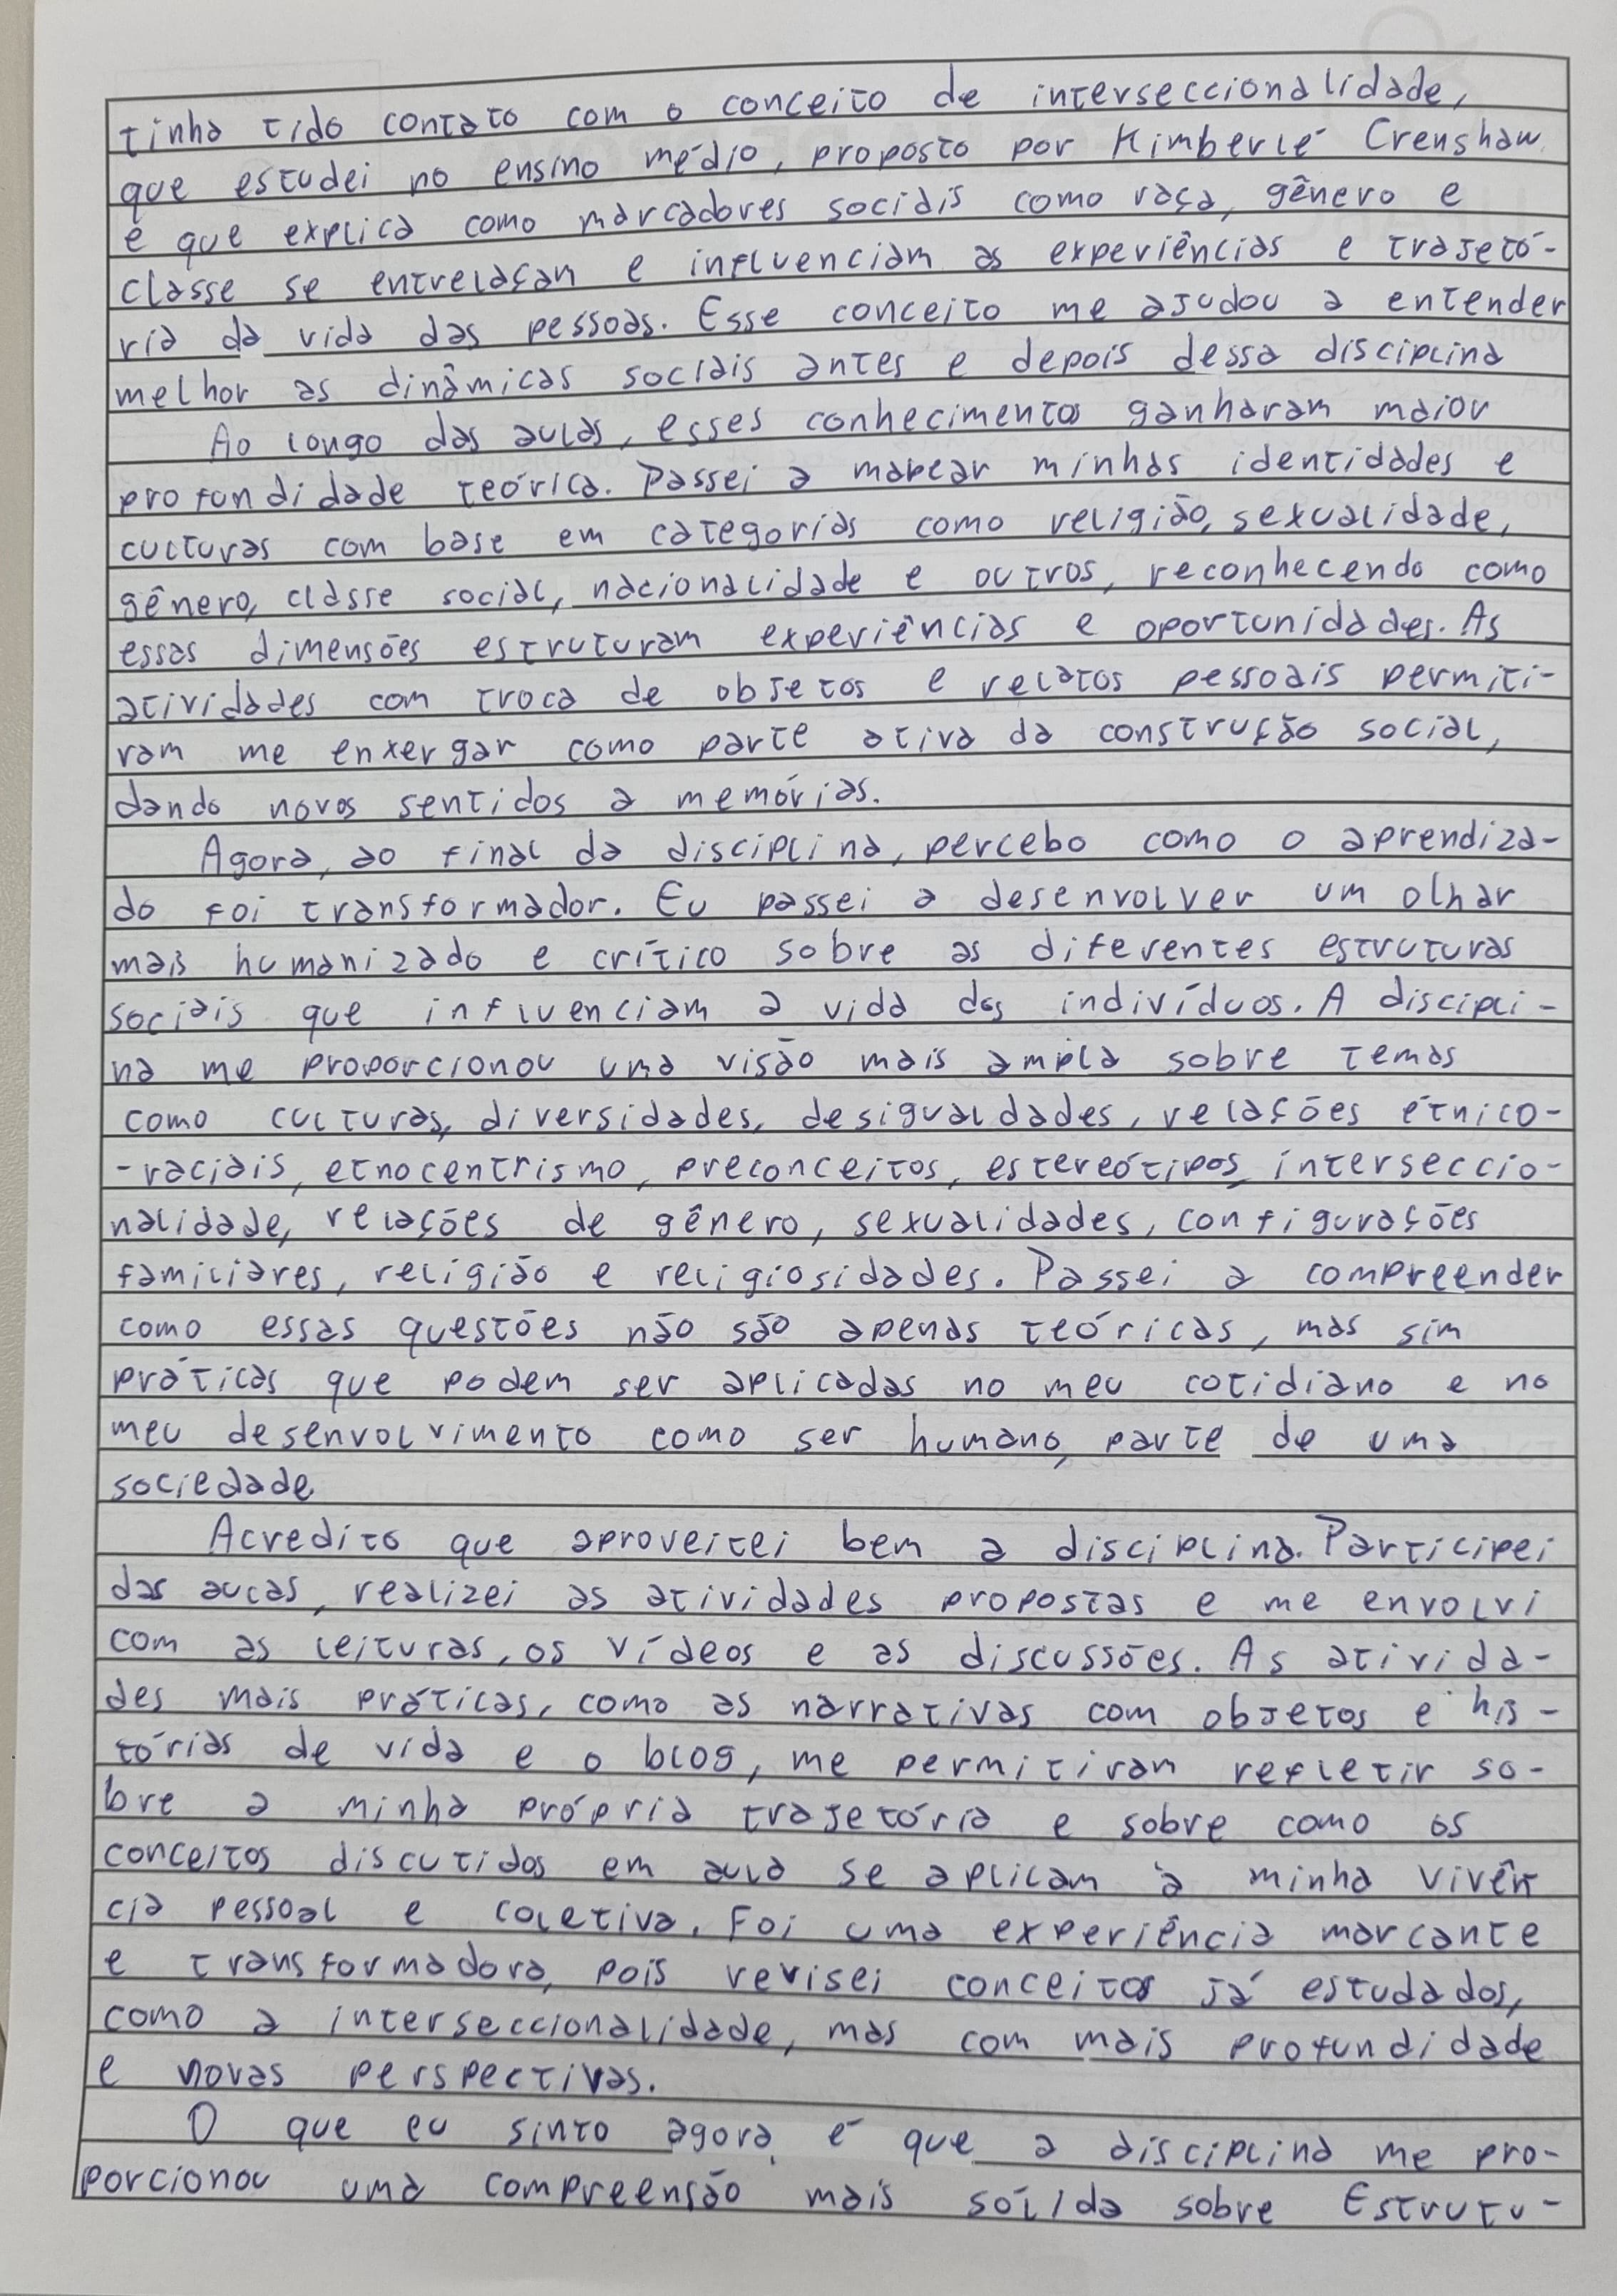 tinha tido contato com o conceito de interseccionalidade,
que estudei no ensino médio, proposto por Kimberlé Crenshaw
e que explica como marcadores sociais como raça, gênero e
classe se entrelaçam e influenciam as experiências e trajetó-
ria da vida das pessoas. Esse conceito me ajudou a entender
melhor as dinâmicas sociais antes e depois dessa disciplina
Ao longo das aulas, esses conhecimentos ganharam maior
profundidade teórica. Passei a mapear minhas identidades e
culturas com base em categorias como religião, sexualidade,
gênero, classe social, nacionalidade e outros, reconhecendo como
essas dimensões estruturam experiências e oportunidades. As
atividades com troca de objetos e relatos pessoais permiti-
ram me enxergar como parte ativa da construção social,
dando novos sentidos a memórias.
Agora, ao final da disciplina, percebo como o aprendiza-
do foi transformador. Eu passei a desenvolver um olhar
mais humanizado e crítico sobre as diferentes estruturas
sociais que influenciam a vida dos indivíduos. A discipli-
na me proporcionou uma visão mais ampla sobre temas
como culturas, diversidades, desigualdades, relações étnico-
-raciais, etnocentrismo, preconceitos, estereótipos, interseccio-
nalidade, relações de gênero, sexualidades, configurações
familiares, religião e religiosidades. Passei a compreender
como essas questões não são apenas teóricas, mas sim
práticas que podem ser aplicadas no meu cotidiano e no
meu desenvolvimento como ser humano, parte de uma
sociedade
Acredito que aproveitei bem a disciplina. Participei
das aulas, realizei as atividades propostas e me envolvi
com as leituras, os vídeos e as discussões. As ativida-
des mais práticas, como as narrativas com objetos e his-
tórias de vida e o blog, me permitiram refletir so-
bre a minha própria trajetória e sobre como os
conceitos discutidos em aula se aplicam à minha vivên
cia pessoal e coletiva. Foi uma experiência marcante
e transformadora, pois revisei conceitos já estudados,
como a interseccionalidade, mas com mais profundidade
e novas perspectivas.
O que eu sinto agora, é que a disciplina me pro-
porcionou uma compreensão mais sólida sobre Estrutu-